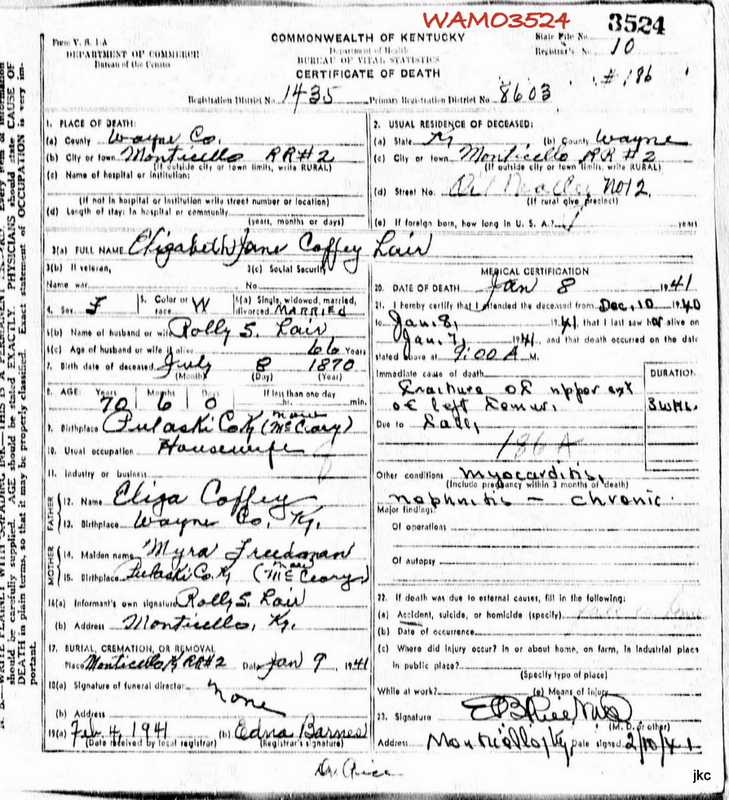 WAMO3524
3524
Form V. S. 1-A
DEPARTMENT OF COMMERCE
Bureau of the Census
COMMONWEALTH OF KENTUCKY
Department of Health
BUREAU OF VITAL STATISTICS
CERTIFICATE OF DEATH
State File No.
Registrar's No. 10
#186
Registration District No. 1435 Primary Registration District No. 8603
1. PLACE OF DEATH:
(a) County Wayne Co.
(b) City or town Monticello RR#2
(If outside city or town limits, write RURAL)
(c) Name of hospital or institution:
(If not in hospital or institution write street number or location)
(d) Length of stay: In hospital or community
(years, months or days)
2. USUAL RESIDENCE OF DECEASED:
(a) State Ky (b) County Wayne
(c) City or town Monticello RR #2
(If outside city or town limits, write RURAL)
(d) Street No. No12
(If rural give precinct)
(e) If foreign born, how long in U. S. A.? years
3(a) FULL NAME Elizabeth Jane Coffey Lair
3(b) If veteran, 3(c) Social Security
Name war No.
4. Sex F 5. Color or race W 6(a) Single, widowed, married, divorced MARRIED
6(b) Name of husband or wife Rolly S. Lair
6(c) Age of husband or wife if alive 66 Years
7. Birth date of deceased July 8 1870
(Month) (Day) (Year)
8. AGE: Years Months Days If less than one day
70 6 0 hr. min.
9. Birthplace Pulaski Co Ky (now McCeary)
10. Usual occupation Housewife
11. Industry or business
FATHER
12. Name Eliza Coffey
13. Birthplace Wayne Co. Ky.
MOTHER
14. Maiden name Myra Freedman
15. Birthplace Pulaski Co. Ky (now McCeary)
16(a) Informant's own signature Rolly S. Lair
(b) Address Monticello, Ky.
17. BURIAL, CREMATION, OR REMOVAL
Place Monticello Ky RR#2 Date Jan 9, 1941
18(a) Signature of funeral director None
(b) Address
19(a) Feb 4, 1941 (b) Edna Barnes
(Date received by local registrar) (Registrar's signature)
MEDICAL CERTIFICATION
20. DATE OF DEATH Jan 8 1941
21. I hereby certify that I attended the deceased from Dec, 10 1940
to Jan. 8, 1941, that I last saw her alive on
Jan. 7, 1941, and that death occurred on the date
stated above at 9:00 A M.
Immediate cause of death DURATION
Fracture of upper ext
of left femur, 3 WKs.
Due to Fall,
186A
Other conditions myocarditis,
(Include pregnancy within 3 months of death)
nephritis - chronic.
Major findings:
Of operations
Of autopsy
22. If death was due to external causes, fill in the following:
(a) Accident, suicide, or homicide (specify)
(b) Date of occurrence
(c) Where did injury occur? In or about home, on farm, in industrial place
In public place?
(Specify type of place)
While at work? (e) Means of injury
23. Signature
(M. D. or other)
Address Monticello, Ky Date signed 2/10/41
jkc